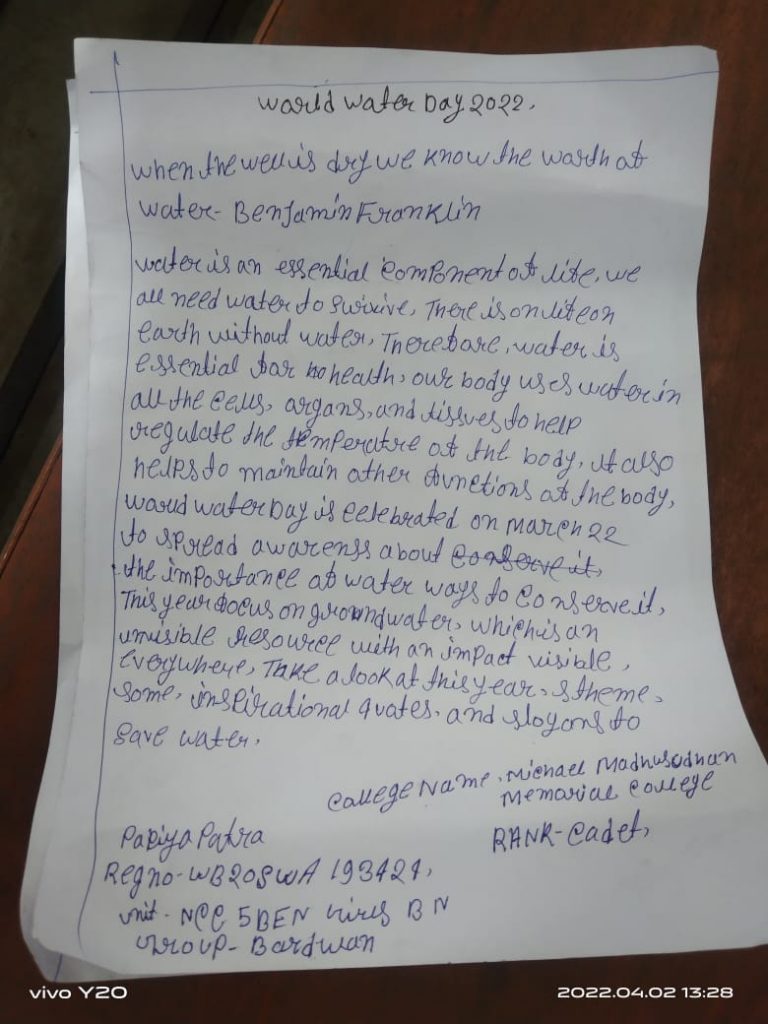 World Water Day 2022.
when the well is dry we know the warth at
water- Benjamin Franklin
water is an essential component ot lite, we
all need water to survive, There is on lite on
earth without water, Theretare, water is
essential tar health, our body uses water in
all the cells, argans, and tissues to help
regulate the temperatre ot the body, it also
helps to maintain ather tunctions at the body,
warld water Day is celebrated on march 22
to spread awarenss about conserve it,
the importance at water ways to conserve it,
This year tocus on groundwater, which is an
unvisible resource with an impact visible,
everywhere, Take a look at this year, s theme,
some, inspirational quates, and slogans to
save water,
college Name, Michael Madhusodhan
Memarial College
Papiya Patra
RANK- Cadet,
Regno- WB20SWA 193421,
unit- NCC 5 BEN Girls BN
Group- Bardwan
vivo Y20
2022.04.02 13:28